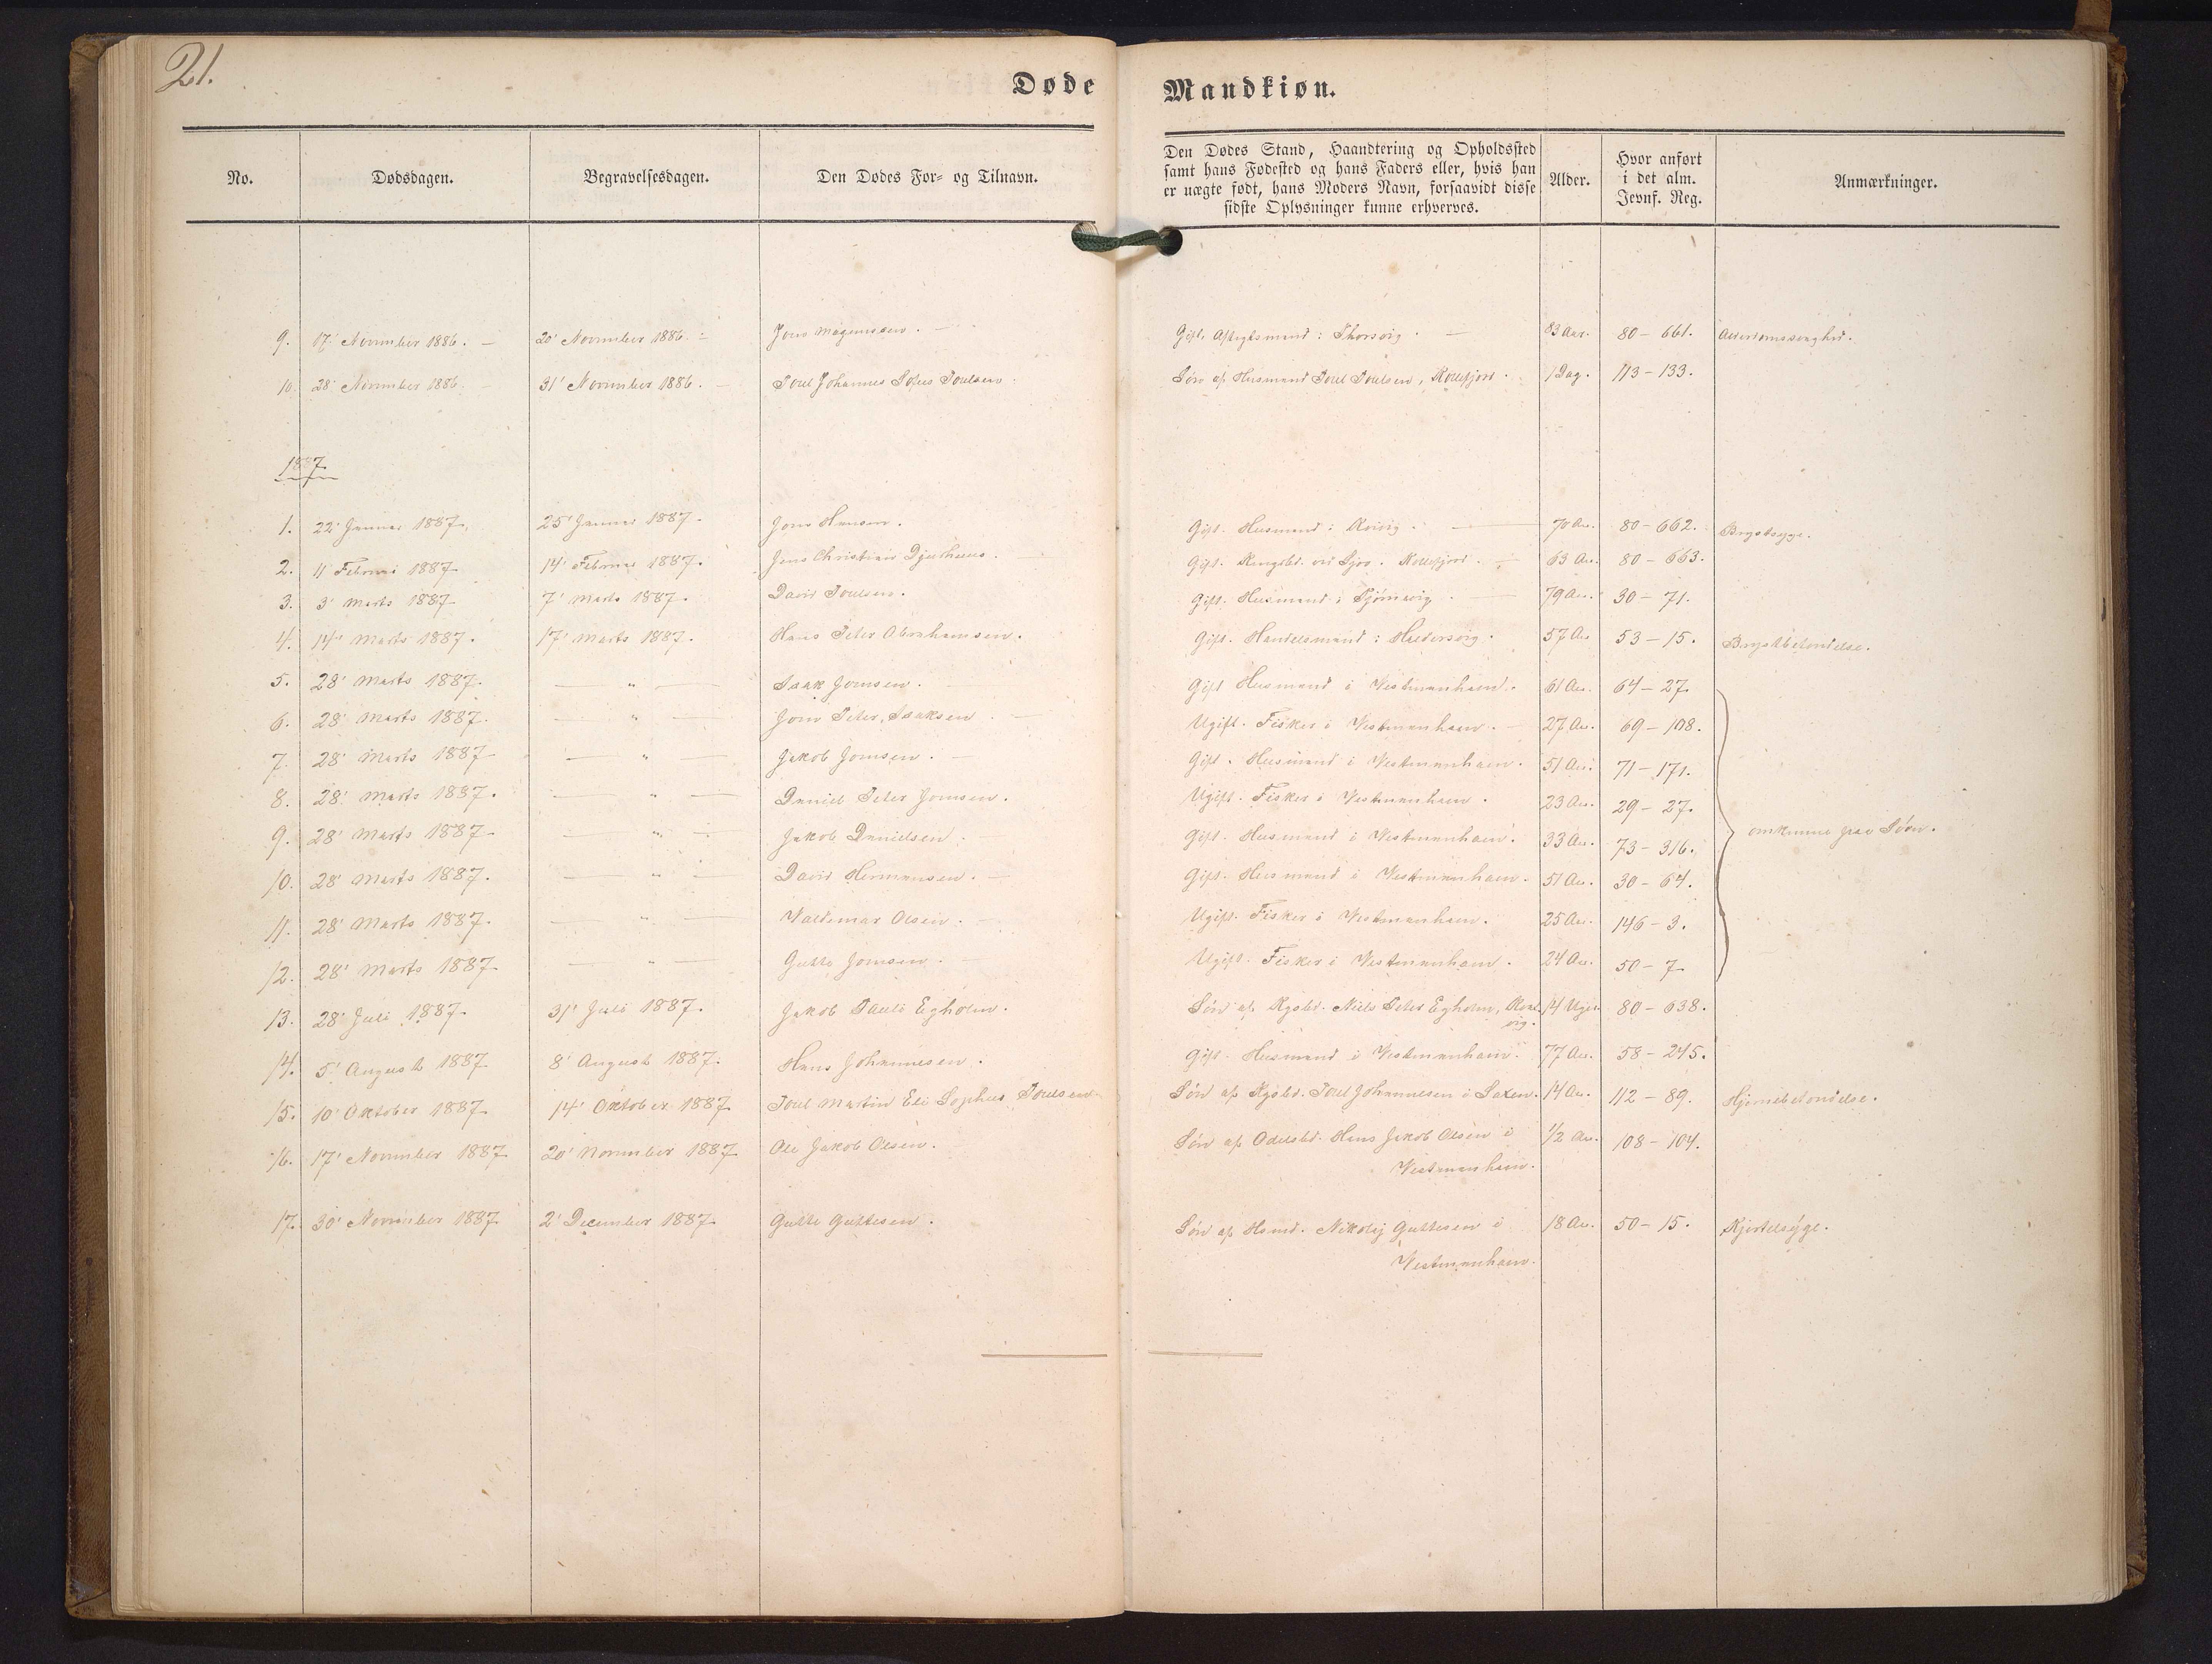 21.
Døde Mandkiøn.
No. Dødsdagen. Begravelsesdagen. Den Dødes For- og Tilnavn. Den Dødes Stand, Haandtering og Opholdssted samt hans Fødested og hans Faders eller, hvis han er uægte født, hans Moders Navn, forsaavidt disse sidste Oplysninger kunne erhverves. Alder. Hvor anført i det alm. Jevnf. Reg. Anmærkninger.
9. 17' November 1886. — 20' November 1886. — Jens Magnussen. — Gift. Aftegtsmand i Thorsvig. — 83 Aar. 80 – 661. Alderdomssvaghed.
10. 28' November 1886. — 31' November 1886. — Poul Johannes Sofus Poulsen. Søn af Husmand Poul Poulsen, Kollefjord. 1 Dag. 113 – 133.
1887
1. 22' Januar 1887. 25' Januar 1887. Hansen. Gift. Husmand i Kvivig. — 70 Aar. 80 – 662. Brystsyge.
2. 11' Februar 1887. 14' Februar 1887. Jens Christian Djurhuus. — Gift. Kongsbd. Kollefjord. — 63 Aar. 80 – 663.
3. 3' Marts 1887. 7' Marts 1887. David Poulsen. Gift. Husmand i Tjørnevig. — 79 Aar. 30 – 71.
4. 14' Marts 1887. 17' Marts 1887. Hans Peter Abrahamsen. Gift. Handelsmand i Haldersvig. 57 Aar. 53 – 15. Brystbetændelse.
5. 28' Marts 1887. — " — Isak Joensen. Gift Husmand i Vestmanhavn. 61 Aar. 64 – 27.
6. 28' Marts 1887. — " — Joen Peter Isaksen. — Ugift. Fisker i Vestmanhavn. — 27 Aar. 69 – 108.
7. 28' Marts 1887. — " — Jakob Joensen. — Gift. Husmand i Vestmanhavn. 51 Aar. 71 – 171.
8. 28' Marts 1887. — " — Daniel Peter Joensen. Ugift. Fisker i Vestmanhavn. 23 Aar. 29 – 27.
9. 28' Marts 1887. — " — Jakob Danielsen. Gift. Husmand i Vestmanhavn. 33 Aar. 73 – 316. omkomne paa Søen.
10. 28' Marts 1887. — " — David Hermansen. — Gift. Husmand i Vestmanhavn. 51 Aar. 30 – 64.
11. 28' Marts 1887. — " — Valdemar Olsen. — Ugift. Fisker i Vestmanhavn. 25 Aar. 146 – 3.
12. 28' Marts 1887. — " — Gutte Joensen. — Ugift. Fisker i Vestmanhavn. 24 Aar. 50 – 7.
13. 28' Juli 1887. 31' Juli 1887. Jakob Pauli Egholm. Søn af Kgsbd. Niels Peter Egholm, 14 Uger 80 – 638.
14. 5' August 1887. 8' August 1887. Hans Johannesen. Gift. Husmand i Vestmanhavn. 77 Aar. 58 – 245.
15. 10' Oktober 1887. 14' Oktober 1887. Poul Martin Eli Sophus Poulsen. Søn af Kgsbd. Poul Johannesen i Saxen. 14 Aar. 112 – 89. Hjernebetændelse.
16. 17' November 1887. 20' November 1887. Ole Jakob Olsen. Søn af Odelsbd. Hans Jakob Olsen i 1/2 Aar. 108 – 104.
Vestmanhavn.
17. 30' November 1887. 2' December 1887. Gutte Guttesen. Søn af Hsmd. Nikolaj Guttesen i 18 Aar. 50 – 15. Kjertelsyge.
Vestmanhavn.